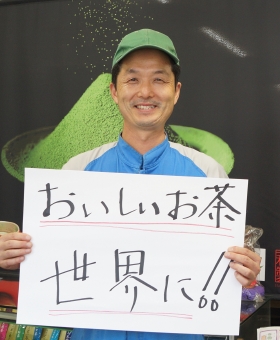 おいしいお茶
世界に!!